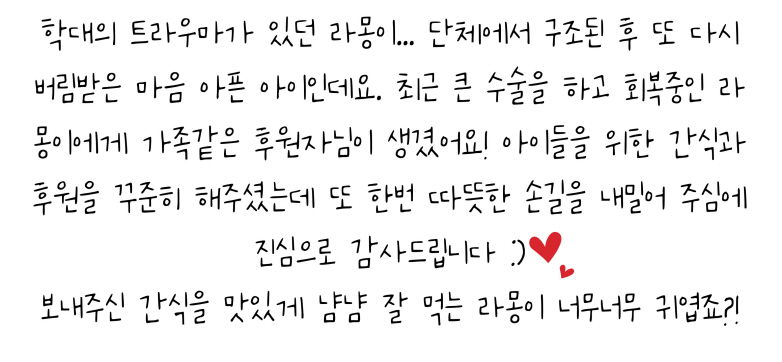 학대의 트라우마가 있던 라몽이... 단체에서 구조된 후 또 다시
버림받은 마음 아픈 아이인데요. 최근 큰 수술을 하고 회복중인 라
몽이에게 가족같은 후원자님이 생겼어요! 아이들을 위한 간식과
후원을 꾸준히 해주셨는데 또 한번 따뜻한 손길을 내밀어 주심에
진심으로 감사드립니다 :)
보내주신 간식을 맛있게 냠냠 잘 먹는 라몽이 너무너무 귀엽죠?!